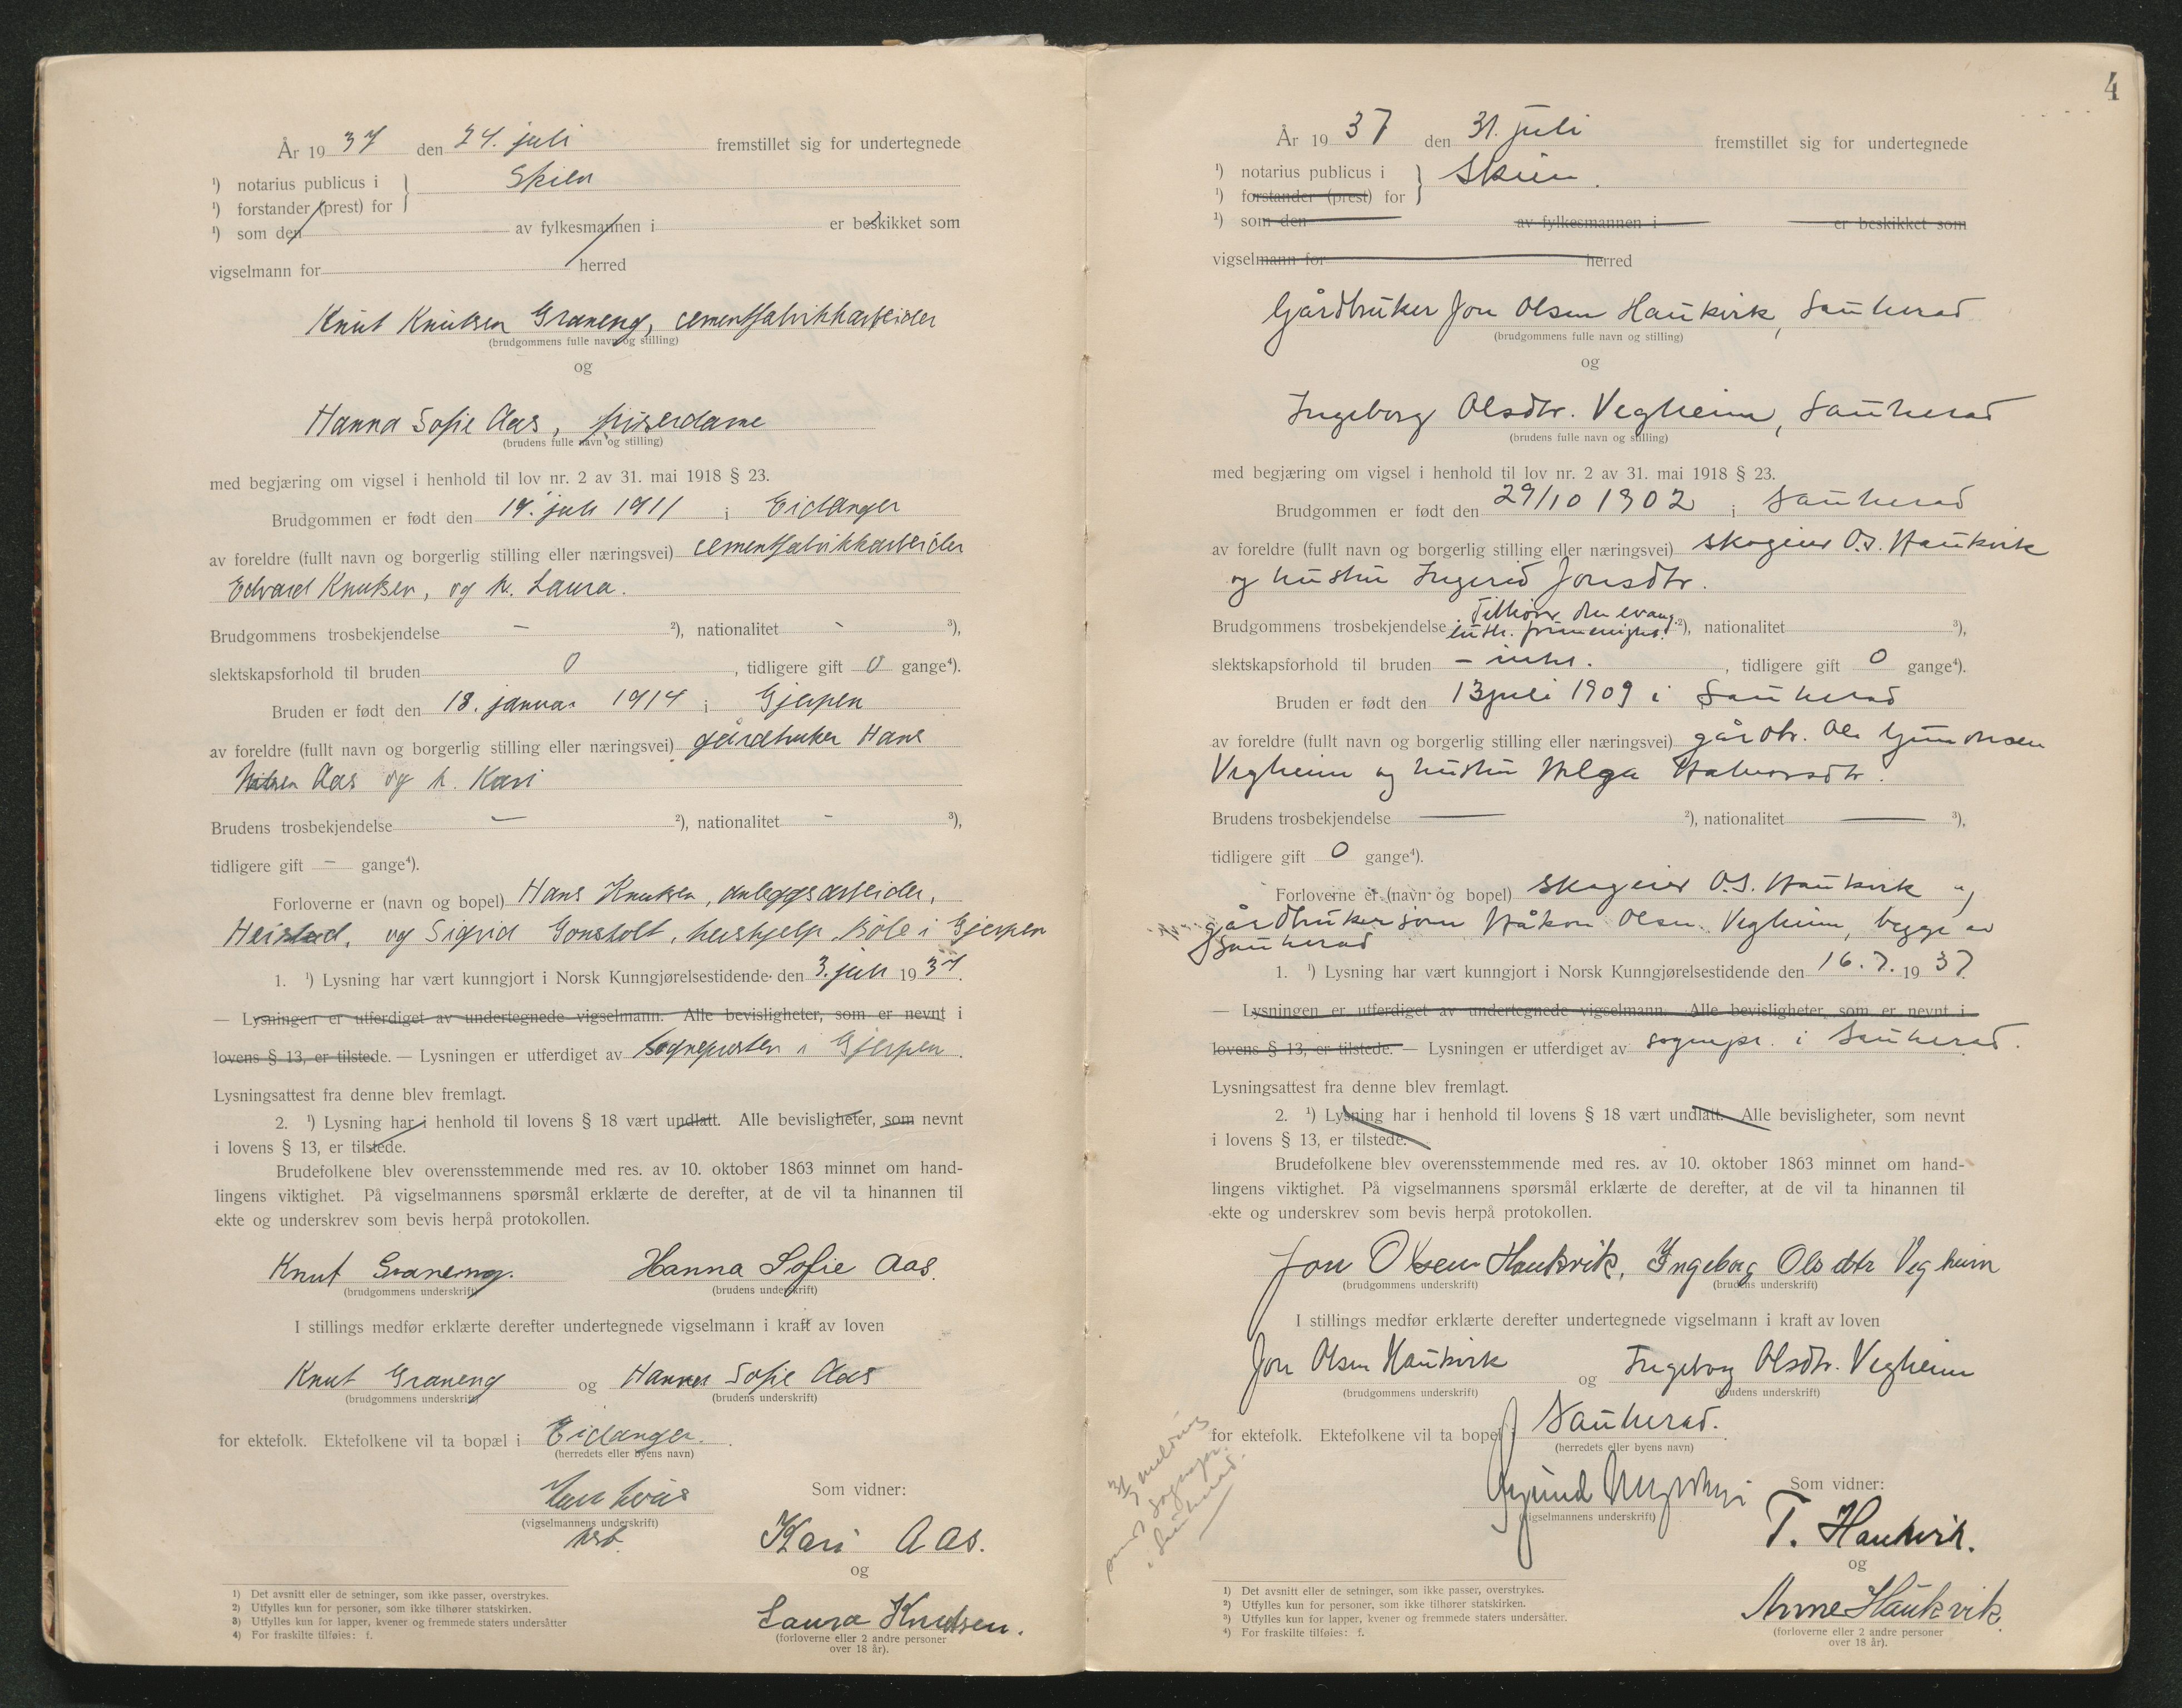 År 19 37 den 24. juli fremstillet sig for undertegnede
¹) notarius publicus i Skien
¹) forstander (prest) for
¹) som den av fylkesmannen i er beskikket som
vigselmann for herred
Knut Knutsen Graneng, cementfabrikkarbeider
(brudgommens fulle navn og stilling)
og
Hanna Sofie Aas, friserdame
(brudens fulle navn og stilling)
med begjæring om vigsel i henhold til lov nr. 2 av 31. mai 1918 § 23.
Brudgommen er født den 19. juli 1911 i Eidanger
av foreldre (fullt navn og borgerlig stilling eller næringsvei) cementfabrikkarbeider
Edvard Knutsen, og h. Laura.
Brudgommens trosbekjendelse – ²), nationalitet – ³),
slektskapsforhold til bruden 0, tidligere gift 0 gange⁴).
Bruden er født den 18. januar 1914 i Gjerpen
av foreldre (fullt navn og borgerlig stilling eller næringsvei) gårdbruker Hans
Aas og h. Kari
Brudens trosbekjendelse – ²), nationalitet – ³),
tidligere gift – gange⁴).
Forloverne er (navn og bopel) Hans Knutsen, anleggsarbeider,
Heistad, og Sigrid Gonsholt, hushjelp, Bøle i Gjerpen
1. ¹) Lysning har vært kunngjort i Norsk Kunngjørelsestidende den 3. juli 1937.
— Lysningen er utferdiget av undertegnede vigselmann. Alle bevisligheter, som er nevnt i
lovens § 13, er tilstede. — Lysningen er utferdiget av sognepresten i Gjerpen.
Lysningsattest fra denne blev fremlagt.
2. ¹) Lysning har i henhold til lovens § 18 vært undlatt. Alle bevisligheter, som nevnt
i lovens § 13, er tilstede.
Brudefolkene blev overensstemmende med res. av 10. oktober 1863 minnet om hand-
lingens viktighet. På vigselmannens spørsmål erklærte de derefter, at de vil ta hinannen til
ekte og underskrev som bevis herpå protokollen.
Knut Graneng. Hanna Sofie Aas.
(brudgommens underskrift) (brudens underskrift)
I stillings medfør erklærte derefter undertegnede vigselmann i kraft av loven
Knut Graneng og Hanna Sofie Aas
(brudgommens underskrift) (brudens underskrift)
for ektefolk. Ektefolkene vil ta bopæl i Eidanger.
(herredets eller byens navn)
Som vidner:
(vigselmannens underskrift)
Kari Aas.
og
Laura Knudsen.
(forloverne eller 2 andre personer
over 18 år).
1) Det avsnitt eller de setninger, som ikke passer, overstrykes.
2) Utfylles kun for personer, som ikke tilhører statskirken.
3) Utfylles kun for lapper, kvener og fremmede staters undersåtter
4) For fraskilte tilføies: f.
4
År 19 37 den 31. juli fremstillet sig for undertegnede
¹) notarius publicus i Skien.
¹) forstander (prest) for
¹) som den av fylkesmannen i er beskikket som
vigselmann for herred
Gårdbruker Jon Olsen Haukvik, Sauherad
(brudgommens fulle navn og stilling)
og
Ingeborg Olsdtr. Vegheim, Sauherad
(brudens fulle navn og stilling)
med begjæring om vigsel i henhold til lov nr. 2 av 31. mai 1918 § 23.
Brudgommen er født den 29/10 1902 i Sauherad
av foreldre (fullt navn og borgerlig stilling eller næringsvei) skogeier O.J. Haukvik
og hustru Ingerid Jonsdtr.
Brudgommens trosbekjendelse Tilhører den evang. luth. frimenighet. ²), nationalitet ³),
slektskapsforhold til bruden – intet., tidligere gift 0 gange⁴).
Bruden er født den 13 juli 1909 i Sauherad
av foreldre (fullt navn og borgerlig stilling eller næringsvei) gårdbr. Ole
Vegheim og hustru Helga Halvorsdtr.
Brudens trosbekjendelse — ²), nationalitet — ³),
tidligere gift 0 gange⁴).
Forloverne er (navn og bopel) skogeier O.J. Haukvik og
gårdbruker Håkon Olsen Vegheim, begge av
Sauherad
1. ¹) Lysning har vært kunngjort i Norsk Kunngjørelsestidende den 16.7. 1937.
— Lysningen er utferdiget av undertegnede vigselmann. Alle bevisligheter, som er nevnt i
lovens § 13, er tilstede. — Lysningen er utferdiget av sognepr. i Sauherad.
Lysningsattest fra denne blev fremlagt.
2. ¹) Lysning har i henhold til lovens § 18 vært undlatt. Alle bevisligheter, som nevnt
i lovens § 13, er tilstede.
Brudefolkene blev overensstemmende med res. av 10. oktober 1863 minnet om hand-
lingens viktighet. På vigselmannens spørsmål erklærte de derefter, at de vil ta hinannen til
ekte og underskrev som bevis herpå protokollen.
Jon Olsen Haukvik, Ingeborg Olsdtr Vegheim
(brudgommens underskrift) (brudens underskrift)
I stillings medfør erklærte derefter undertegnede vigselmann i kraft av loven
Jon Olsen Haukvik og Ingeborg Olsdtr. Vegheim
(brudgommens underskrift) (brudens underskrift)
for ektefolk. Ektefolkene vil ta bopel i Sauherad.
(herredets eller byens navn)
Som vidner:
(vigselmannens underskrift)
T. Haukvik.
og
Anne Haukvik.
(forloverne eller 2 andre personer
over 18 år).
31/7 sognepr. i Sauherad.
1) Det avsnitt eller de setninger, som ikke passer, overstrykes.
2) Utfylles kun for personer, som ikke tilhører statskirken.
3) Utfylles kun for lapper, kvener og fremmede staters undersåtter.
4) For fraskilte tilføies: f.